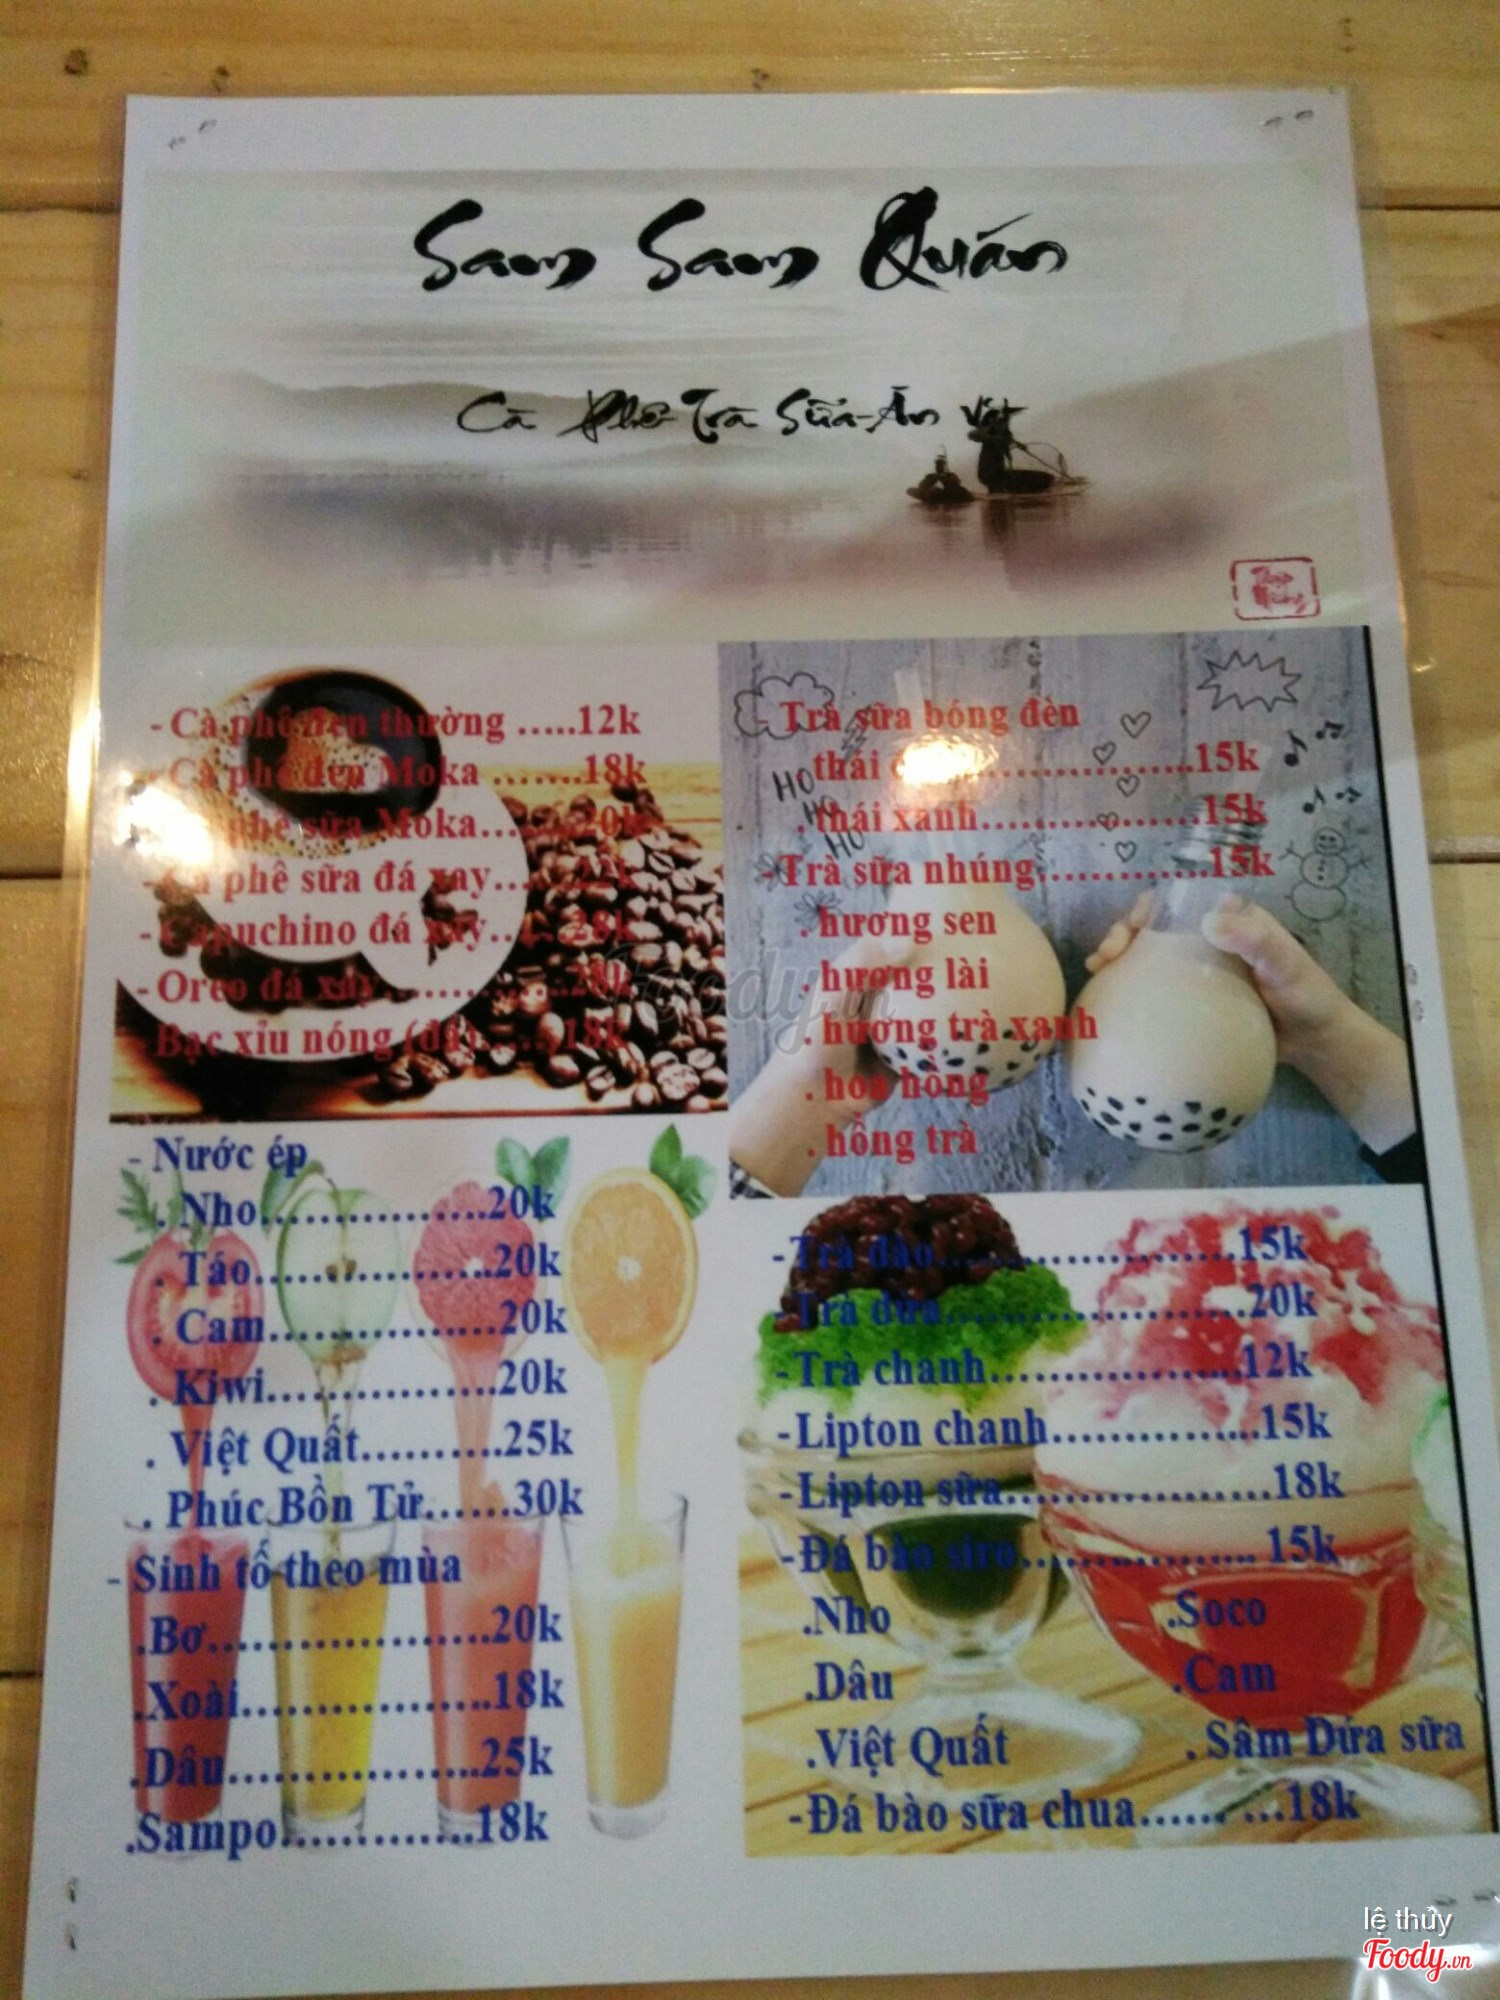 Sam Sam Quán
Cà Phê-Trà Sữa-Ăn Vặt
- Cà phê đen thường .....12k
Cà phê đen Moka ........18k
phê sữa Moka.........20k
- Cà phê sữa đá xay.......22k
- Capuchino đá xay.......28k
- Oreo đá xay..............28k
Bạc xỉu nóng (đá).......18k
- Trà sữa bóng đèn
thái ......................15k
. thái xanh...................15k
- Trà sữa nhúng...............15k
. hương sen
. hương lài
. hương trà xanh
. hoa hồng
. hồng trà
- Nước ép
. Nho...................20k
. Táo...................20k
. Cam...................20k
. Kiwi..................20k
. Việt Quất............25k
. Phúc Bồn Tử.......30k
- Sinh tố theo mùa
.Bơ.......................20k
.Xoài.....................18k
.Dâu.....................25k
.Sampo.................18k
-Trà đào.........................15k
-Trà dứa.........................20k
-Trà chanh.....................12k
-Lipton chanh..................15k
-Lipton sữa......................18k
-Đá bào siro.................... 15k
.Nho .Soco
.Dâu .Cam
.Việt Quất . Sâm Dứa sữa
-Đá bào sữa chua....... ...18k
lệ thủy
Foody.vn